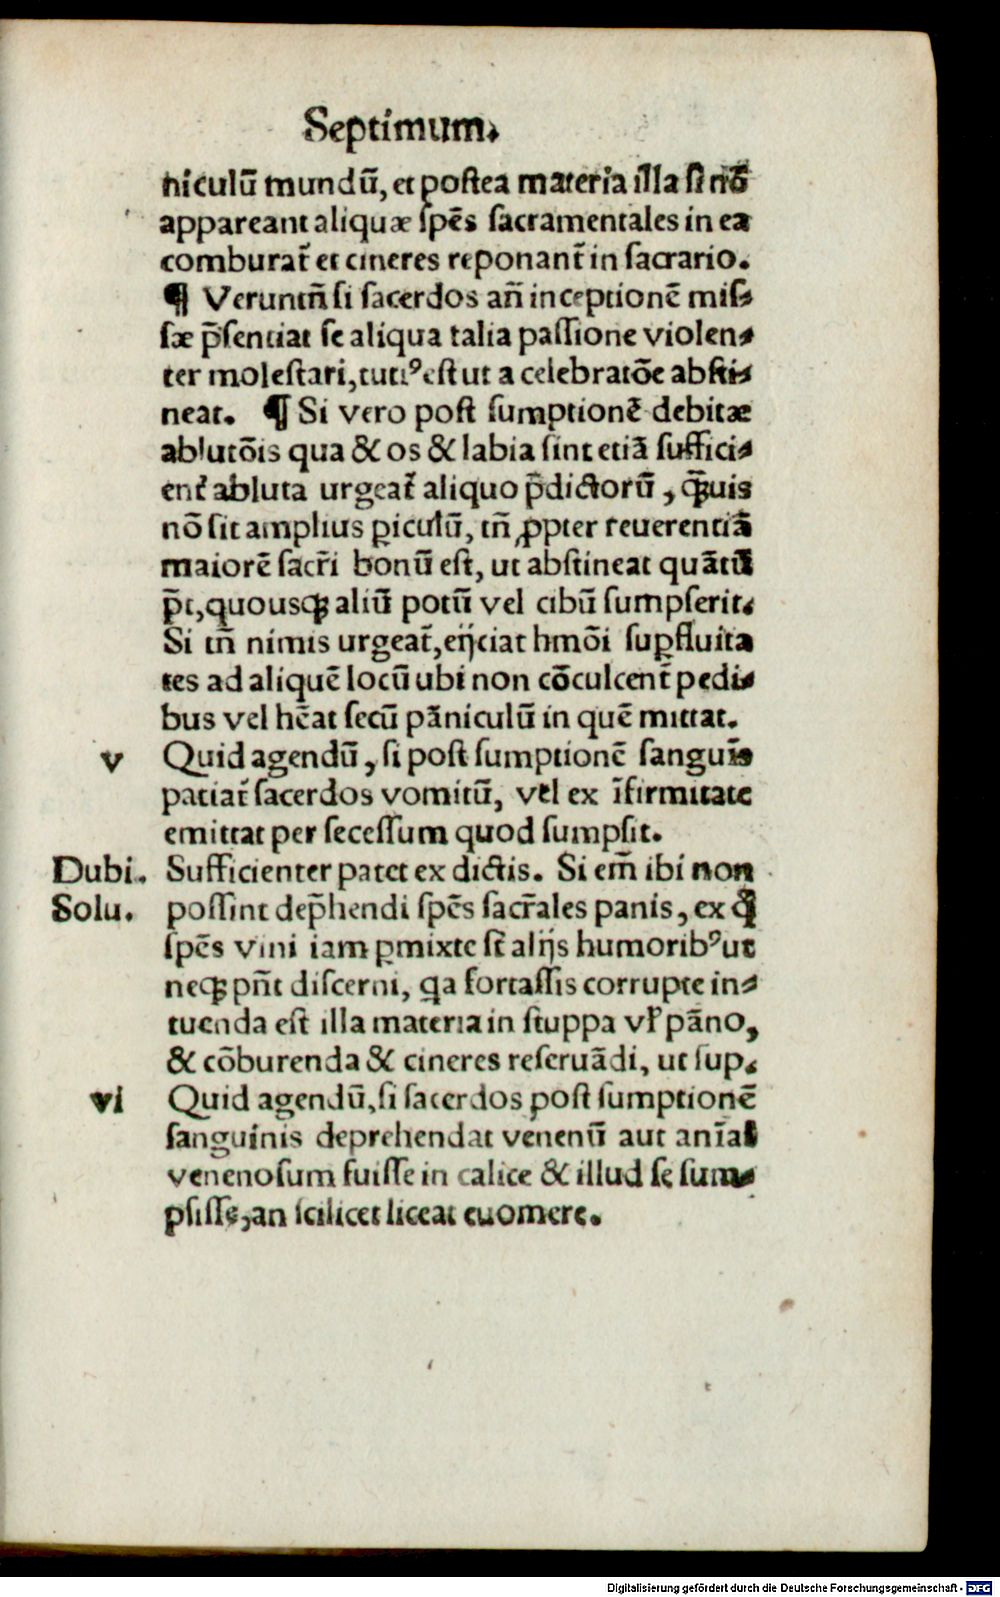 Septimum.
niculũ mundũ, et postea materia illa si nõ
appareant aliquæ spẽs sacramentales in ea
comburat̃ et cineres reponant̃ in sacrario.
¶ Veruntñ si sacerdos añ inceptionẽ mis-
sæ p̃sentiat se aliqua talia passione violen-
ter molestari, tutiꝰ est ut a celebratõe absti-
neat. ¶ Si vero post sumptionẽ debitæ
ablutõis qua & os & labia sint etiã suffici-
ent̃ abluta urgeat̃ aliquo p̃dictorũ, q̃uis
nõ sit amplius ꝑiculũ, tñ ꝓpter reuerentiã
maiorẽ sacr̃i bonũ est, ut abstineat quãtũ
p̃t, quousqꝫ aliũ potũ vel cibũ sumpserit.
Si tñ nimis urgeat̃, eijciat hmõi suꝑfluita
tes ad aliquẽ locũ ubi non cõculcent̃ pedi-
bus vel hẽat secũ pãniculũ in quẽ mittat.
v Quid agendũ, si post sumptionẽ sanguĩs
patiat̃ sacerdos vomitũ, vel ex ĩfirmitate
emittat per secessum quod sumpsit.
Dubi. Sufficienter patet ex dictis. Si em̃ ibi non
Solu. possint dep̃hendi spẽs sacr̃ales panis, ex q̃
spẽs vini iam ꝑmixte st̃ alijs humoribꝰ ut
neqꝫ pñt discerni, qa fortassis corrupte in-
tuenda est illa materia in stuppa vl̃ pãno,
& cõburenda & cineres reseruãdi, ut sup.
vi Quid agendũ, si sacerdos post sumptionẽ
sanguinis deprehendat venenũ aut anĩal
venenosum fuisse in calice & illud se sum-
psisse, an scilicet liceat euomere.
Digitalisierung gefördert durch die Deutsche Forschungsgemeinschaft - DFG